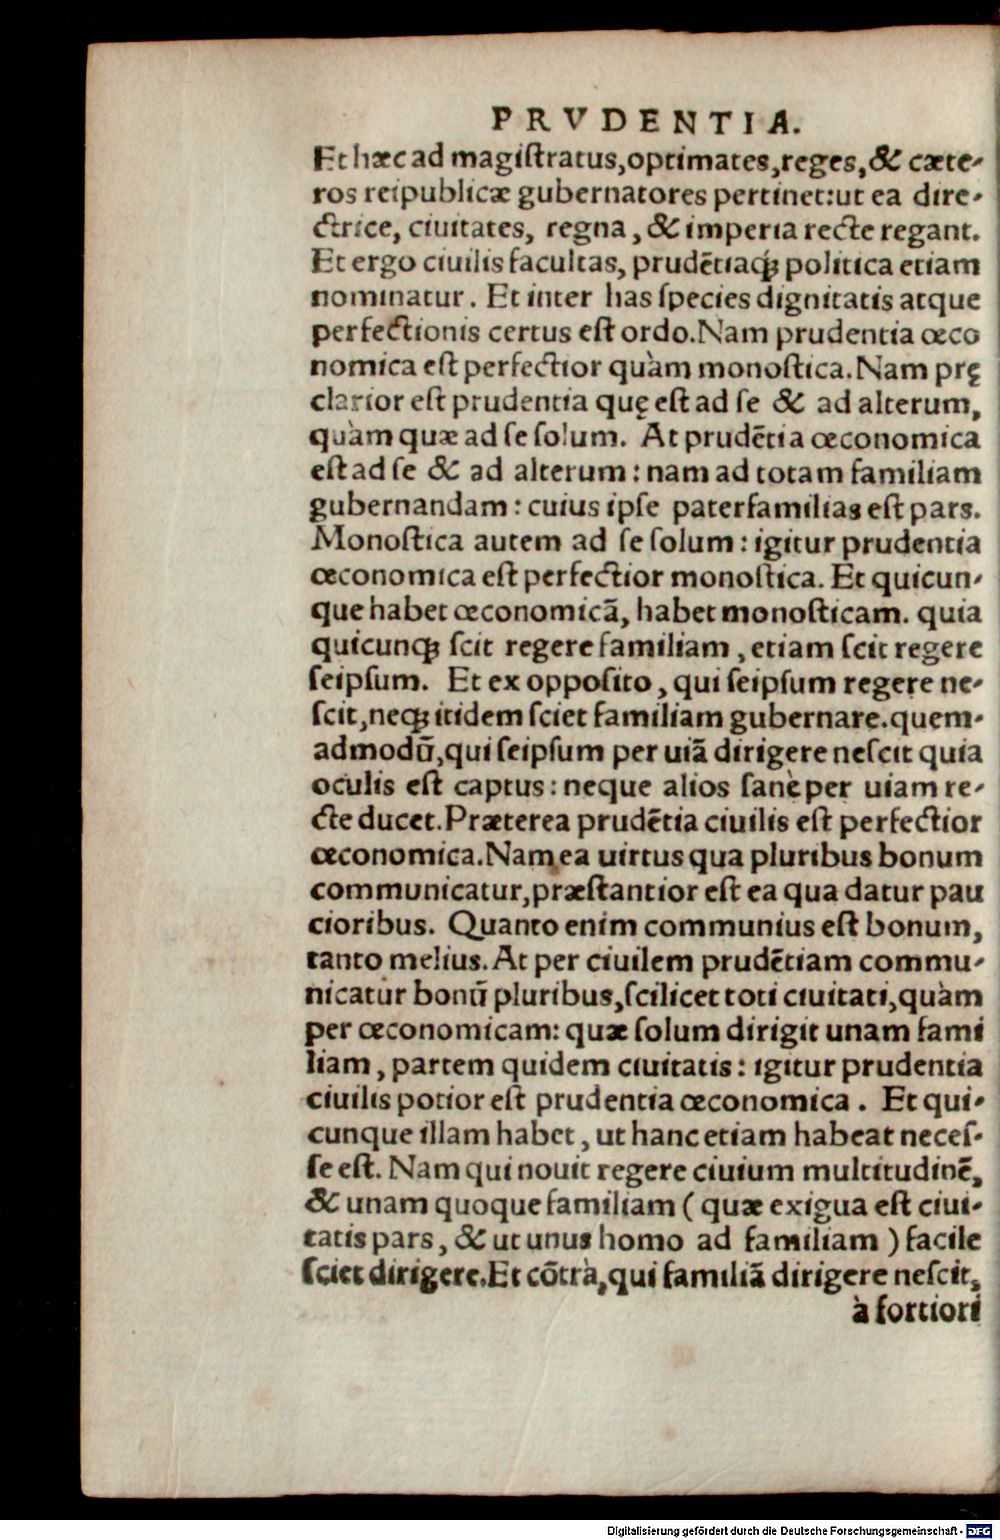 PRVDENTIA.
Et hæc ad magiſtratus,optimates,reges,& cæte-
ros reipublicæ gubernatores pertinet:ut ea dire-
ctrice, ciuitates, regna, & imperia recte regant.
Et ergo ciuilis facultas, prudētiaq́ꝫ politica etiam
nominatur. Et inter has ſpecies dignitatis atque
perfectionis certus eſt ordo.Nam prudentia œco
nomica eſt perfectior quàm monoſtica.Nam prę
clarior eſt prudentia quę eſt ad ſe & ad alterum,
quàm quæ ad ſe ſolum. At prudētia œconomica
eſt ad ſe & ad alterum: nam ad totam familiam
gubernandam: cuius ipſe paterfamilias eſt pars.
Monoſtica autem ad ſe ſolum: igitur prudentia
œconomica eſt perfectior monoſtica. Et quicun-
que habet œconomicā, habet monoſticam. quia
quicunqꝫ ſcit regere familiam, etiam ſcit regere
ſeipſum. Et ex oppoſito, qui ſeipſum regere ne-
ſcit,neqꝫ itidem ſciet familiam gubernare.quem-
admodū,qui ſeipſum per uiā dirigere neſcit quia
oculis eſt captus: neque alios ſanè per uiam re-
cte ducet.Præterea prudētia ciuilis eſt perfectior
œconomica.Nam ea uirtus qua pluribus bonum
communicatur,præſtantior eſt ea qua datur pau
cioribus. Quanto enim communius eſt bonum,
tanto melius.At per ciuilem prudētiam commu-
nicatur bonū pluribus,ſcilicet toti ciuitati,quàm
per œconomicam: quæ ſolum dirigit unam fami
liam, partem quidem ciuitatis: igitur prudentia
ciuilis potior eſt prudentia œconomica. Et qui-
cunque illam habet, ut hanc etiam habeat neceſ-
ſe eſt. Nam qui nouit regere ciuium multitudinē,
& unam quoque familiam (quæ exigua eſt ciui-
tatis pars, & ut unus homo ad familiam) facile
ſciet dirigere.Et cōtrà,qui familiā dirigere neſcit,
à fortiori
Digitalisierung gefördert durch die Deutsche Forschungsgemeinschaft - DFG